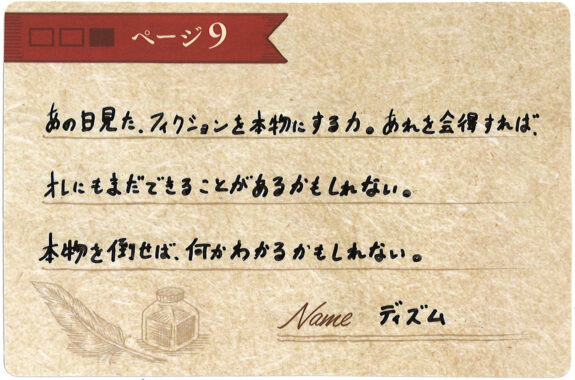 ページ9
あの日見た、フィクションを本物にする力。あれを会得すれば、
オレにもまだできることがあるかもしれない。
本物を倒せば、何かわかるかもしれない。
Name ディズム